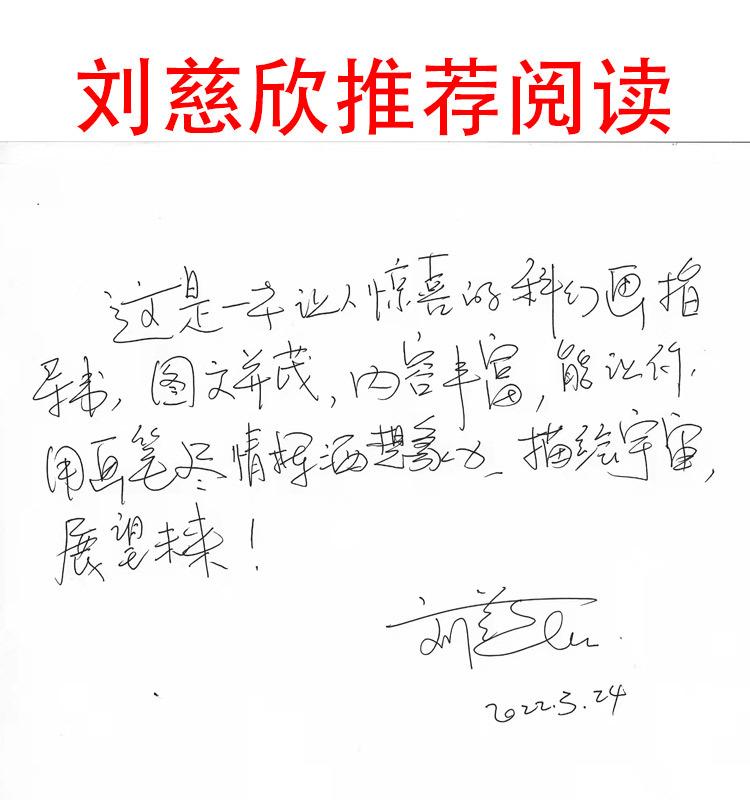 刘慈欣推荐阅读
这是一本让人惊喜的科幻画指
导书，图文并茂，内容丰富，能让你
用画笔尽情挥洒想象力、描绘宇宙，
展望未来！
刘慈欣
2022.3.24